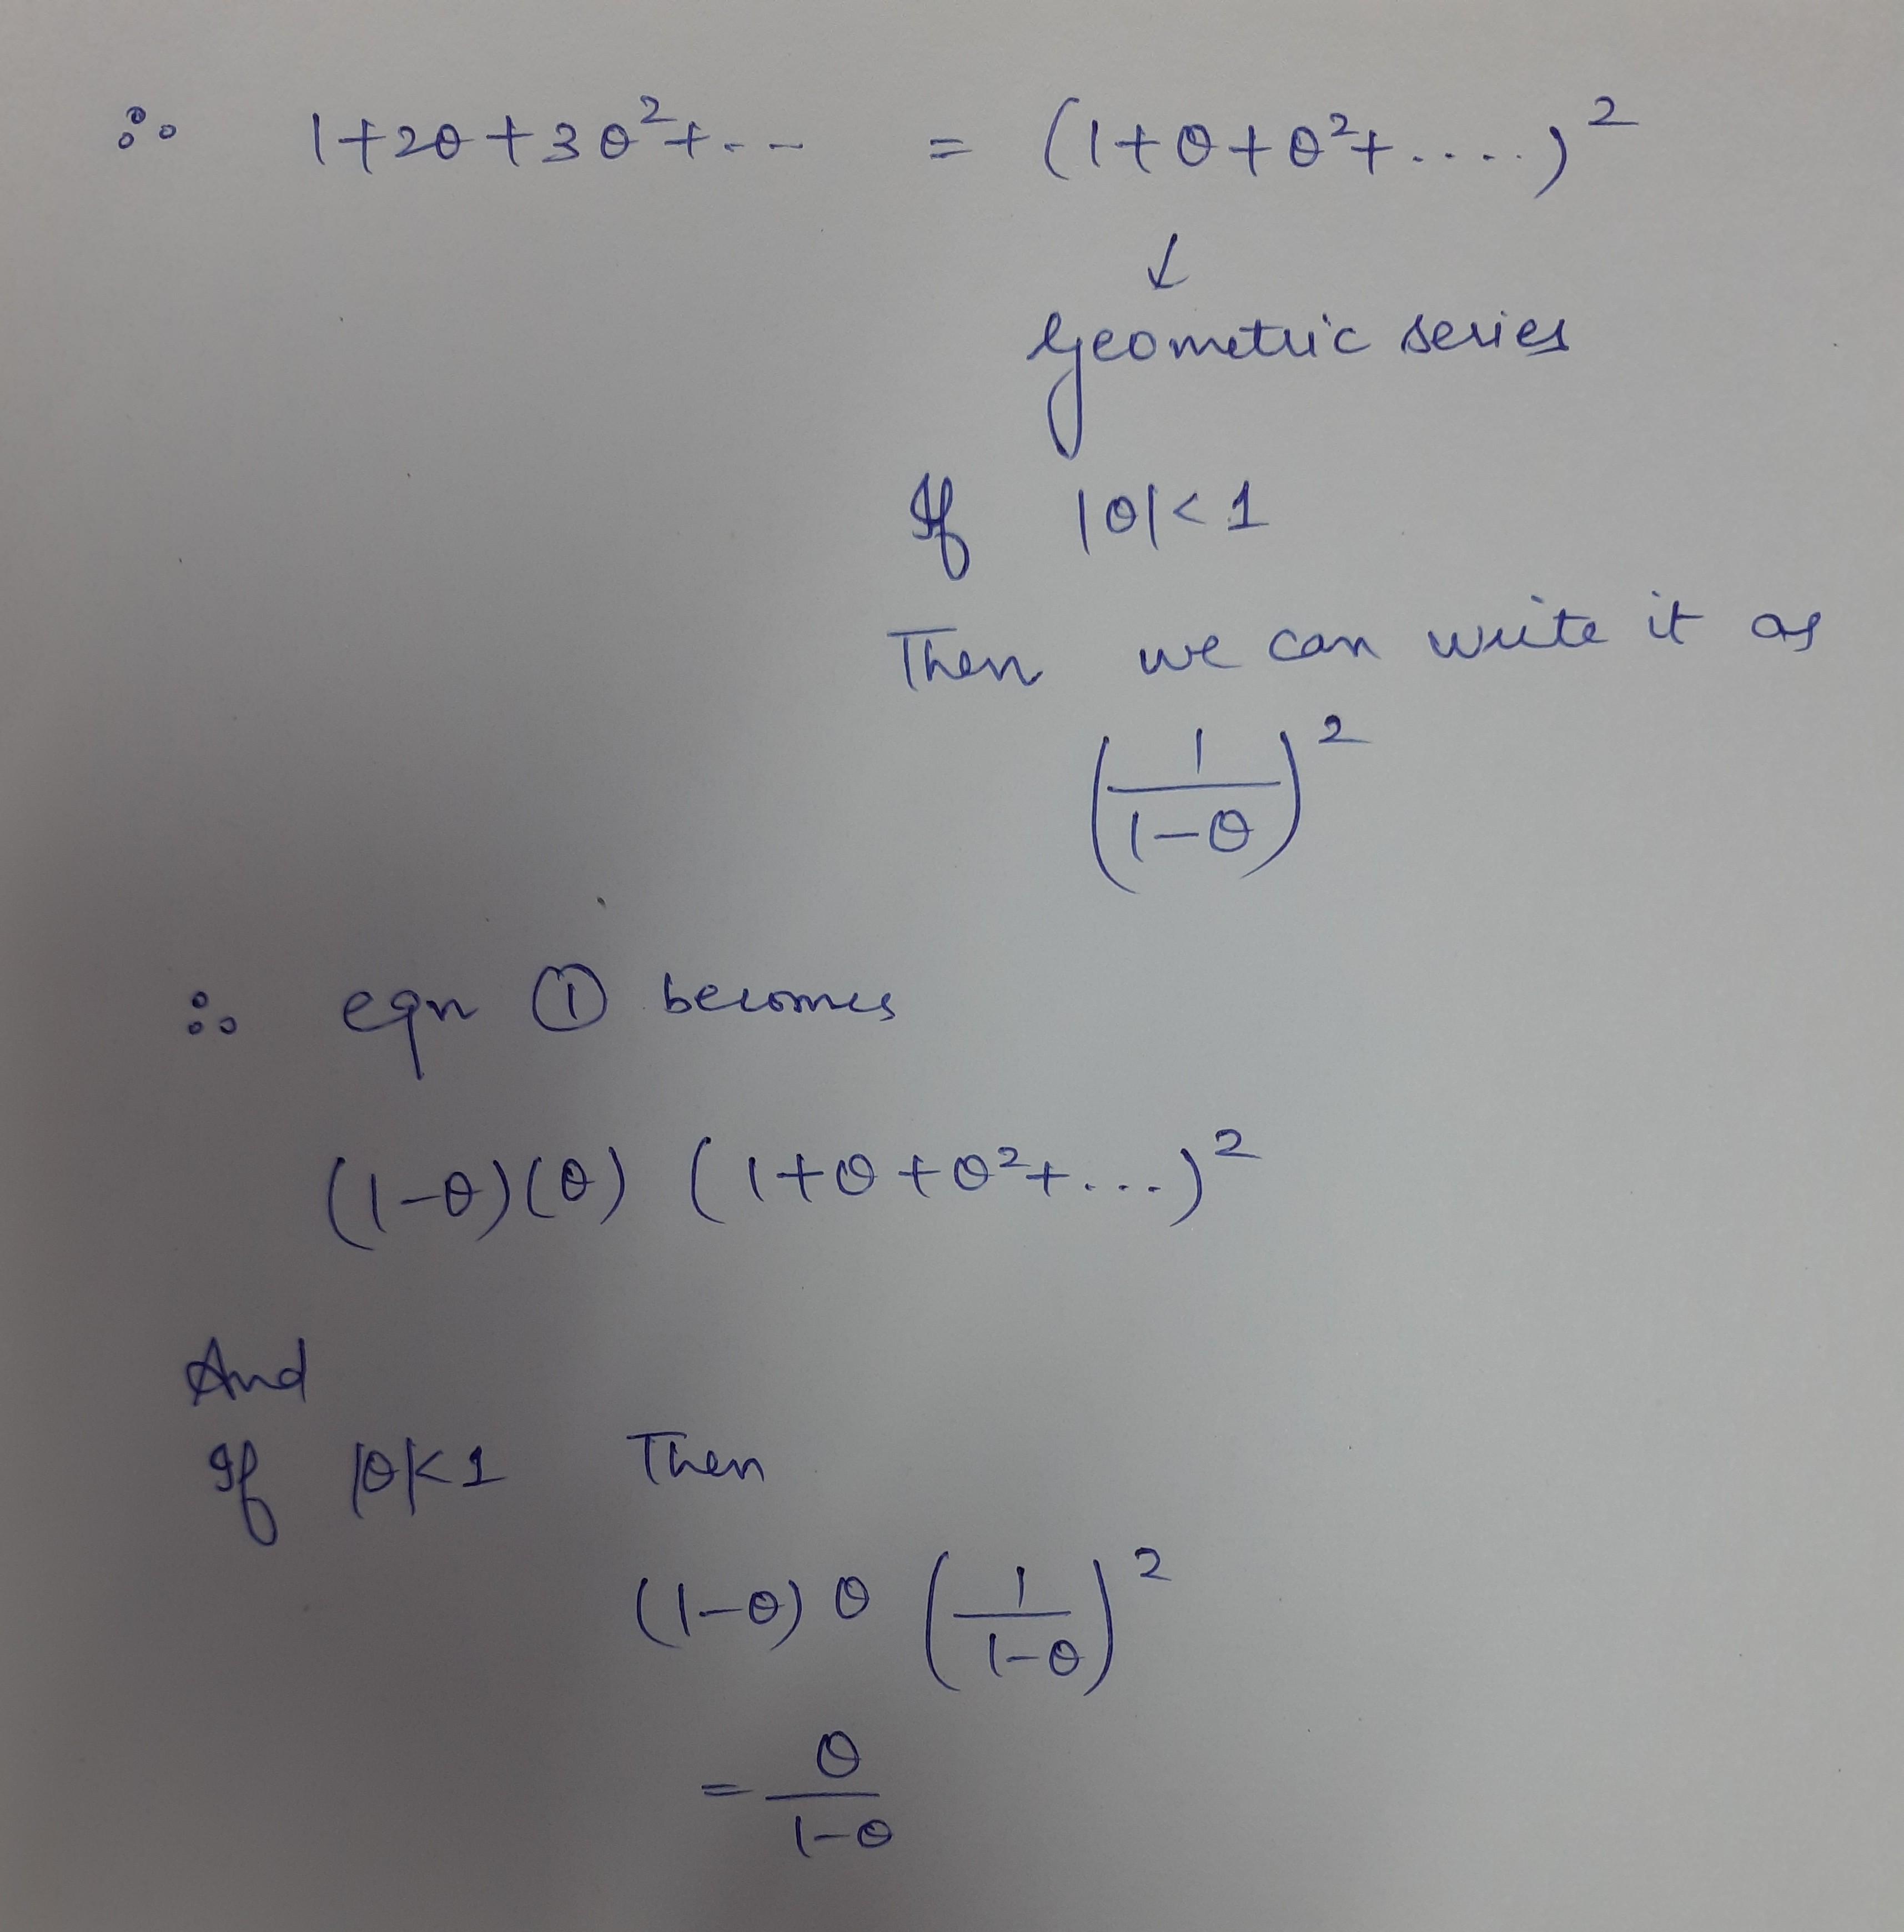 ∴ 1+2θ+3θ²+... = (1+θ+θ²+.....)²
↓
Geometric series
If |θ|<1
Then we can write it as
(1/(1-θ))²
∴ eqn ① becomes
(1-θ)(θ) (1+θ+θ²+...)²
And
If |θ|<1 Then
(1-θ) θ (1/(1-θ))²
= θ/(1-θ)